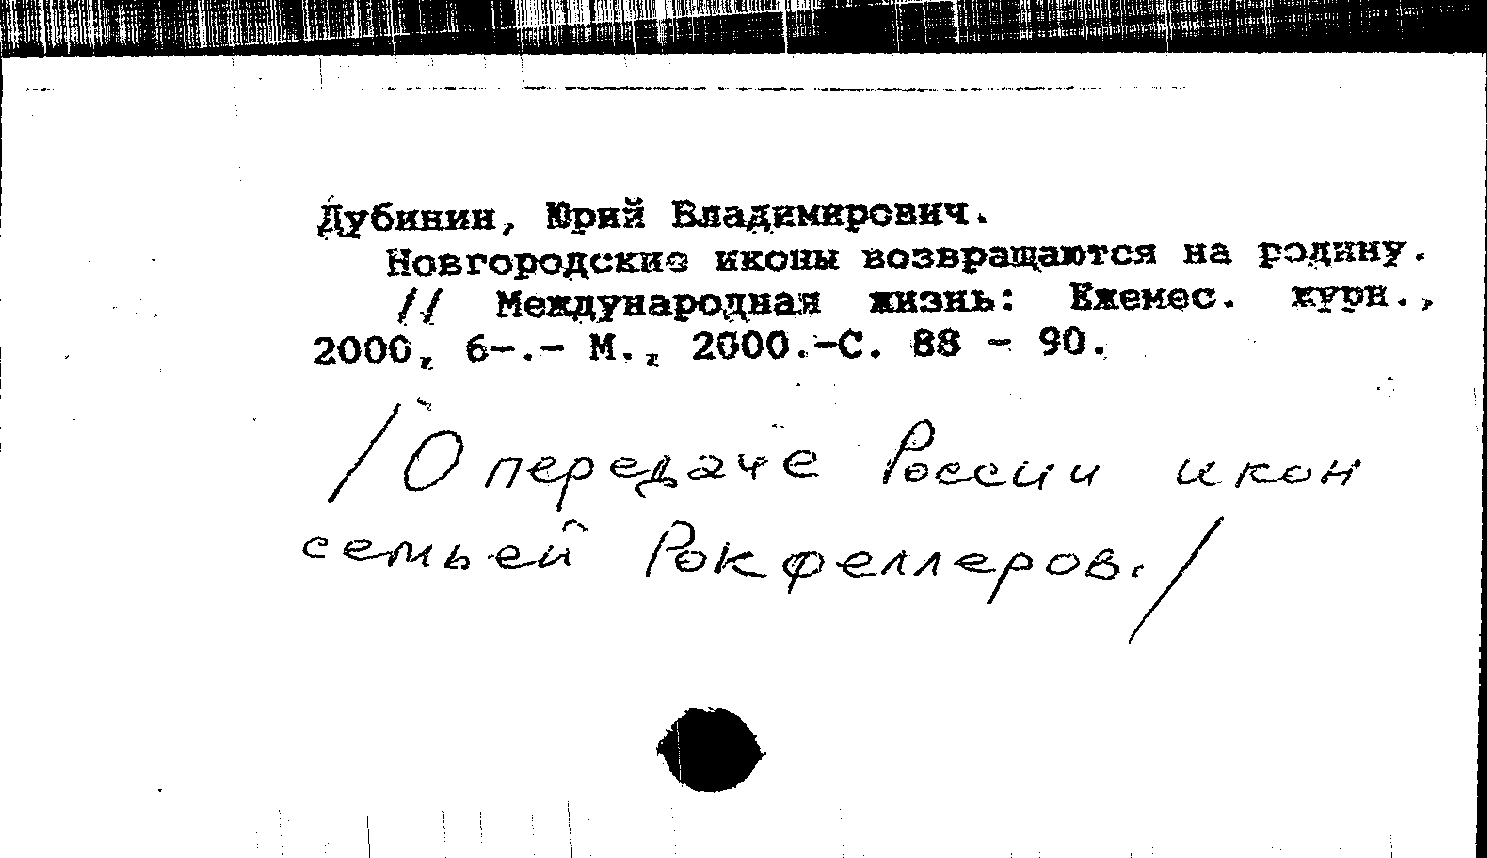 Дубинин, Юрий Владимирович.
Новгородские иконы возвращаются на родину.
// Международная жизнь: Ежемес. журн.,
2000, 6-.- М., 2000.-С. 88 - 90.
/О передаче России икон
семьей Рокфеллеров./